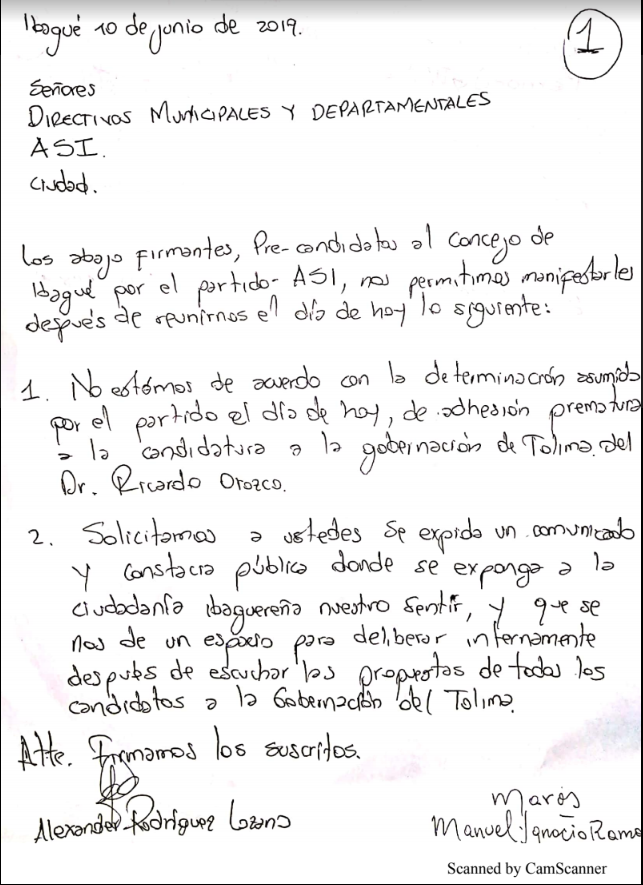 Ibagué 10 de junio de 2019.
1
Señores
DIRECTIVOS MUNICIPALES Y DEPARTAMENTALES
ASI.
Ciudad.
Los abajo Firmantes, Pre-candidatos al Concejo de
Ibagué por el partido ASI, nos permitimos manifestarles
después de reunirnos el día de hoy lo siguiente:
1. No estamos de acuerdo con la determinación asumida
por el partido el día de hoy, de adhesión prematura
a la candidatura a la gobernación de Tolima del
Dr. Ricardo Orozco.
2. Solicitamos a ustedes se expida un comunicado
y constacia pública donde se exponga a la
ciudadanía ibaguereña nuestro sentir, y que se
nos de un espacio para deliberar internamente
después de escuchar las propuestas de todos los
candidatos a la Gobernación del Tolima.
Atte. Firmamos los suscritos.
Alexander Rodríguez Lozano
Manuel Ignacio Ramo
Scanned by CamScanner